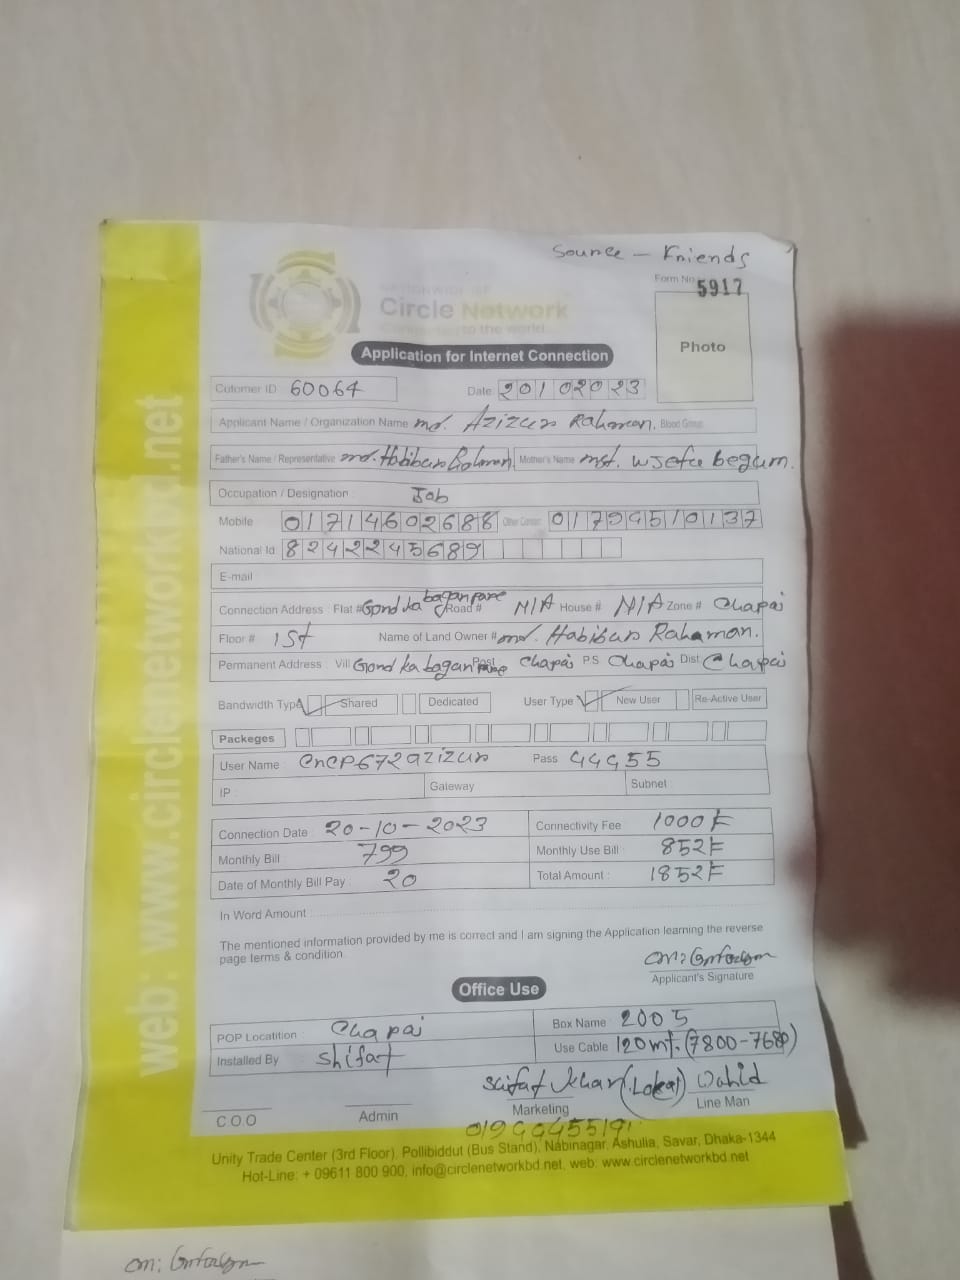 Source - Friends
Form No. 5917
NATIONWIDE ISP
Circle Network
Connecting to the world
Photo
Application for Internet Connection
Cutomer ID 60064 Date 20102023
Applicant Name / Organization Name md. Azizur Rahaman. Blood Group
Father's Name / Representative md. Habibur Rahman Mother's Name mst. wJefa begum.
Occupation / Designation : Job
Mobile 01714602688 Other Contact 01794510137
National Id 8242245689
E-mail
Connection Address : Flat # Gondka baganpara Road # N/A House # N/A Zone # Chapai
Floor # 1st Name of Land Owner # md. Habibur Rahaman.
Permanent Address Vill Gondka bagan Post Chapai P.S Chapai Dist Chapai
Bandwidth Type Shared Dedicated User Type New User Re-Active User
Packeges
User Name : CnCP672azizur Pass 44455
IP : Gateway Subnet
Connection Date : 20-10-2023 Connectivity Fee 1000৳
Monthly Bill : 799 Monthly Use Bill : 852৳
Date of Monthly Bill Pay : 20 Total Amount : 1852৳
In Word Amount :
The mentioned information provided by me is correct and I am signing the Application learning the reverse
page terms & condition.
Applicant's Signature
Office Use
POP Locatition : Chapai Box Name : 2005
Installed By Shifat Use Cable 120mt. (7800-7680)
Shifat Khan (Lokal) Wahid
C O O Admin Marketing Line Man
Unity Trade Center (3rd Floor), Pollibiddut (Bus Stand), Nabinagar, Ashulia, Savar, Dhaka-1344
Hot-Line: + 09611 800 900, info@circlenetworkbd.net, web: www.circlenetworkbd.net
web: www.circlenetworkbd.net